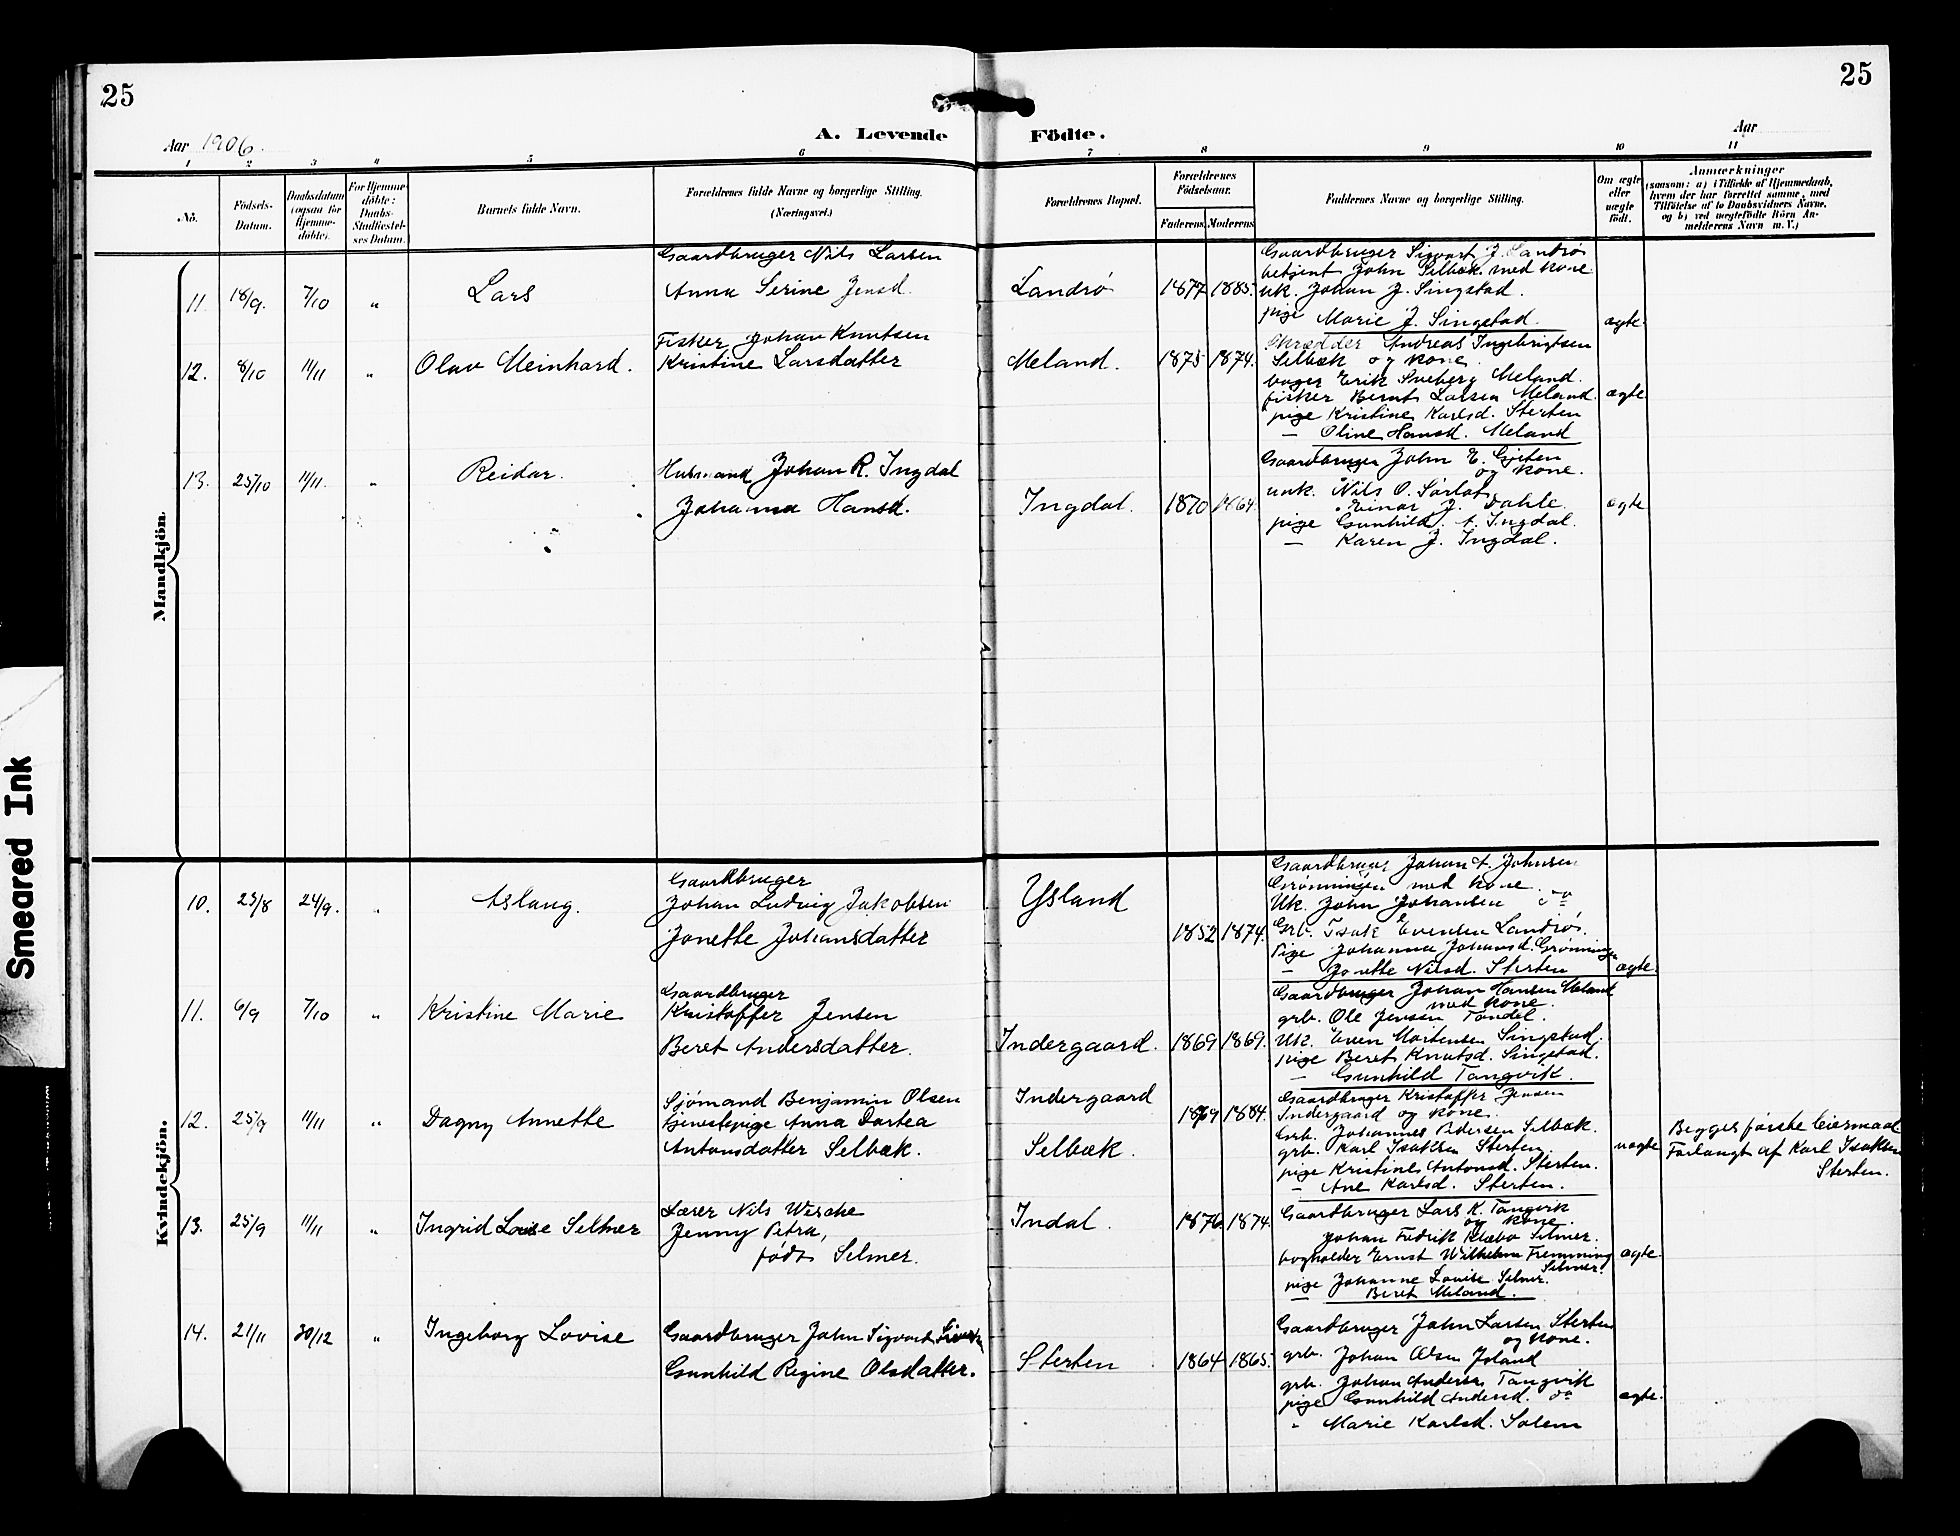 25
25
Aar 1906.
A. Levende Födte.
Aar
1 2 3 4 5 6 7 8 9 10 11
No.
Födsels-Datum.
Daabsdatum (ogsaa for Hjemme-döbte).
For Hjemme-döbte: Daabs-Stadfæstel-ses Datum.
Barnets fulde Navn.
Forældrenes fulde Navne og borgerlige Stilling.
(Næringsvei.)
Forældrenes Bopæl.
Forældrenes Födselsaar.
Faderens. Moderens.
Faddernes Navne og borgerlige Stilling.
Om ægte eller uægte födt.
Anmærkninger
(saasom: a) i Tilfælde af Hjemmedaab,
hvem der har forrettet samme, med
Tilföielse af to Daabsvidners Navne,
og b) ved uægtefödte Börn An-
melderens Navn m. V.)
Mandkjön.
11. 18/9. 7/10 „ Lars
Gaardbruger Nils Larsen
Anna Serine Jensd.
Landrø 1877 1885.
Gaardbruger Sigvart J. Landrø
betjent John Selbæk med kone
uk. Johan J. Singstad.
pige Marie J. Singstad.
ægte
12. 8/10 11/11 „ Olav Meinhard.
Fisker Johan Knutsen
Kristine Larsdatter
Meland. 1875 1874.
Skrædder Andreas Ingebrigtsen
Selbæk og kone.
Erik Sveberg Meland.
fisker Bernt Larsen Meland.
pige Kristine Karlsd. Sterten
— Oline Hansd. Meland
ægte
13. 25/10 11/11. „ Reidar.
Husmand Johan R. Ingdal
Johanna Hansd.
Ingdal. 1870 1864.
Gaardbruger John E. Gjeten
og kone.
unk. Nils O. Sørlat
„ Einar J. Dahle.
pige Gunhild A. Ingdal.
— Karen J. Ingdal.
ægte
Kvindekjön.
10. 23/8 24/9. „ Aslaug.
Gaardbruger
Johan Ludvig Jakobsen
Jonette Johansdatter
Ysland
1852 1874.
Gaardbruger Johan A. Johnsen
Grønningen med kone.
Uk. John Johansen do
Grb. Isak Evensen Landrø.
Pige Johanna Johansd. Grønningen
— Jonette Nilsd. Sterten
ægte.
11. 6/9 7/10 „ Kristine Marie
Gaardbruger
Kristoffer Jensen
Beret Andersdatter.
Indergaard. 1869 1869.
Gaardbruger Johan Hansen Meland
med kone.
grb. Ole Jensen Tøndel.
Uk. Even Mortensen Singstad.
pige Beret Knutsd. Singstad.
— Gunhild Tangvik.
12. 25/9 11/11 „ Dagny Annette
Sjømand Benjamin Olsen
Tjenestepige Anna Dortea
Antonsdatter Selbæk.
Indergaard
Selbæk.
1869 1884.
Gaardbruger Kristoffer Jensen
Indergaard og kone.
Grb. Johannes Pedersen Selbæk.
grb. Karl Isaksen Sterten
pige Kristine Antonsd. Sterten.
— Ane Karlsd. Sterten.
uægte
Begges første leiermaal
Forlangt af Karl Isaksen
Sterten.
13. 25/9 11/11 „ Ingrid Lovise Selmer
Lærer Nils Wesche
Jenny Petra,
født Selmer.
Indal. 1876 1874.
Gaardbruger Lars K. Tangvik
og kone.
Johan Fredrik Klæbo Selmer.
bogholder Ernst Wilhelm Flemming
Selmer.
pige Johanne Louise Selmer.
— Beret Meland.
ægte.
14. 21/11 30/12 „ Ingeborg Lovise
Gaardbruger John Sigvart Sivertsen
Gunhild Regine Olsdatter.
Sterten 1864 1865.
Gaardbruger John Larsen Sterten
og kone.
grb. Johan Olsen Ysland
grb. Johan Anderss. Tangvik
pige Gunhild Andersd. do
„ Marie Karlsd. Solem
ægte.
Smeared Ink